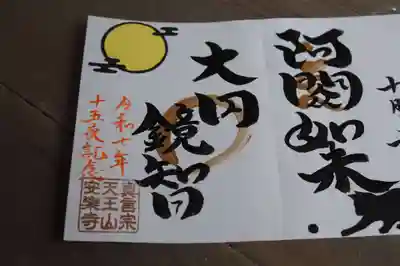 阿閦如来
大円
鏡智
令和七年
十五夜記念
真言宗
天王山
安楽寺